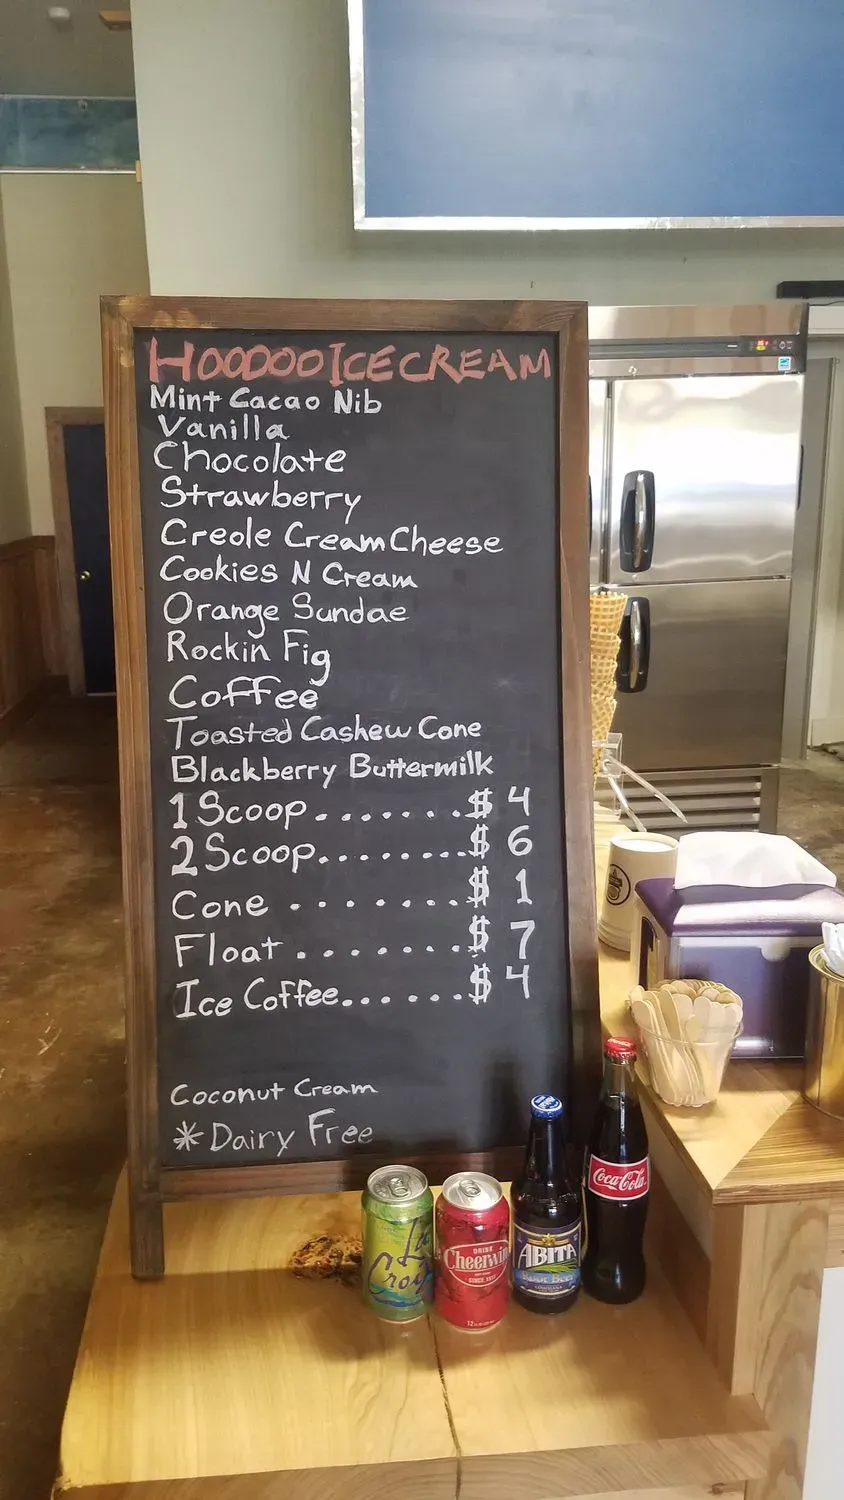 HOODOO ICE CREAM
Mint Cacao Nib
Vanilla
Chocolate
Strawberry
Creole Cream Cheese
Cookies N Cream
Orange Sundae
Rockin Fig
Coffee
Toasted Cashew Cone
Blackberry Buttermilk
1 Scoop.......$ 4
2 Scoop........$ 6
Cone ........$ 1
Float ........$ 7
Ice Coffee......$ 4
Coconut Cream
* Dairy Free
La
Croix
DRINK
Cheerwine
SINCE 1917
ABITA
Root Beer
LOUISIANA
Coca-Cola